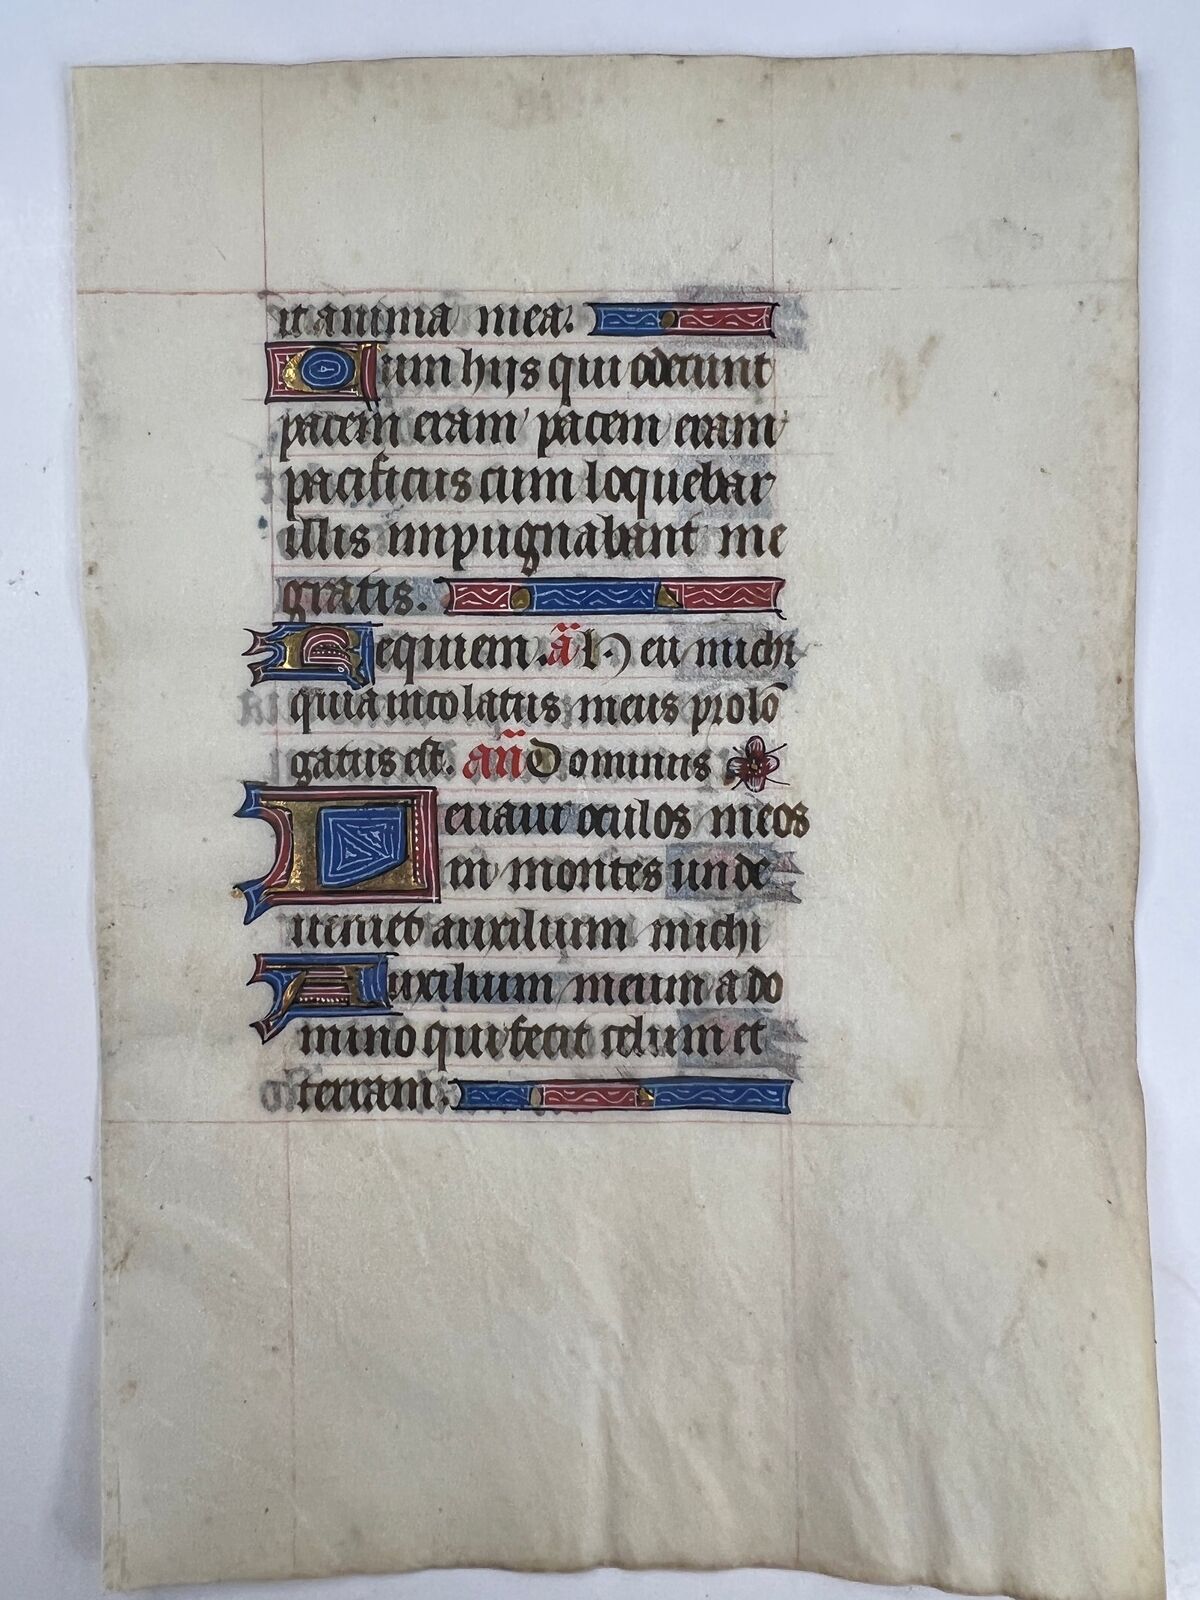 it anima mea.
Cum hijs qui oderunt
pacem eram pacem eram
pacificus cum loquebar
illis inpugnabant me
gratis.
Requiem. a̅ Heu michi
quia incolatus meus prolō
gatus est. an̄ Dominus
Leuaui oculos meos
in montes unde
ueniet auxilium michi
Auxilium meum a do
mino qui fecit celum et
terram.